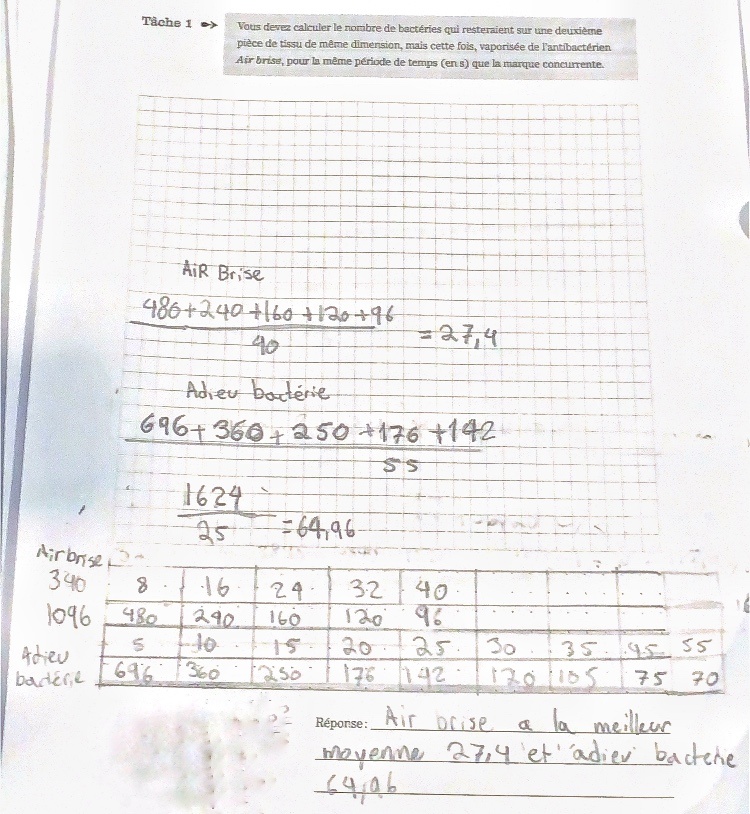 Tâche 1 •➔ Vous devez calculer le nombre de bactéries qui resteraient sur une deuxième
pièce de tissu de même dimension, mais cette fois, vaporisée de l'antibactérien
Air brise, pour la même période de temps (en s) que la marque concurrente.
AiR Brise
480+240+160+120+96
= 27,4
40
Adieu bactérie
696+360+250+176+142
55
1624
= 64,96
25
Air brise
340 8 16 24 32 40
1096 480 240 160 120 96
5 10 15 20 25 30 35 45 55
Adieu
bactérie 696 360 250 176 142 120 105 75 70
Réponse: Air brise a la meilleur
moyenne 27,4 et adieu bacterie
64,96